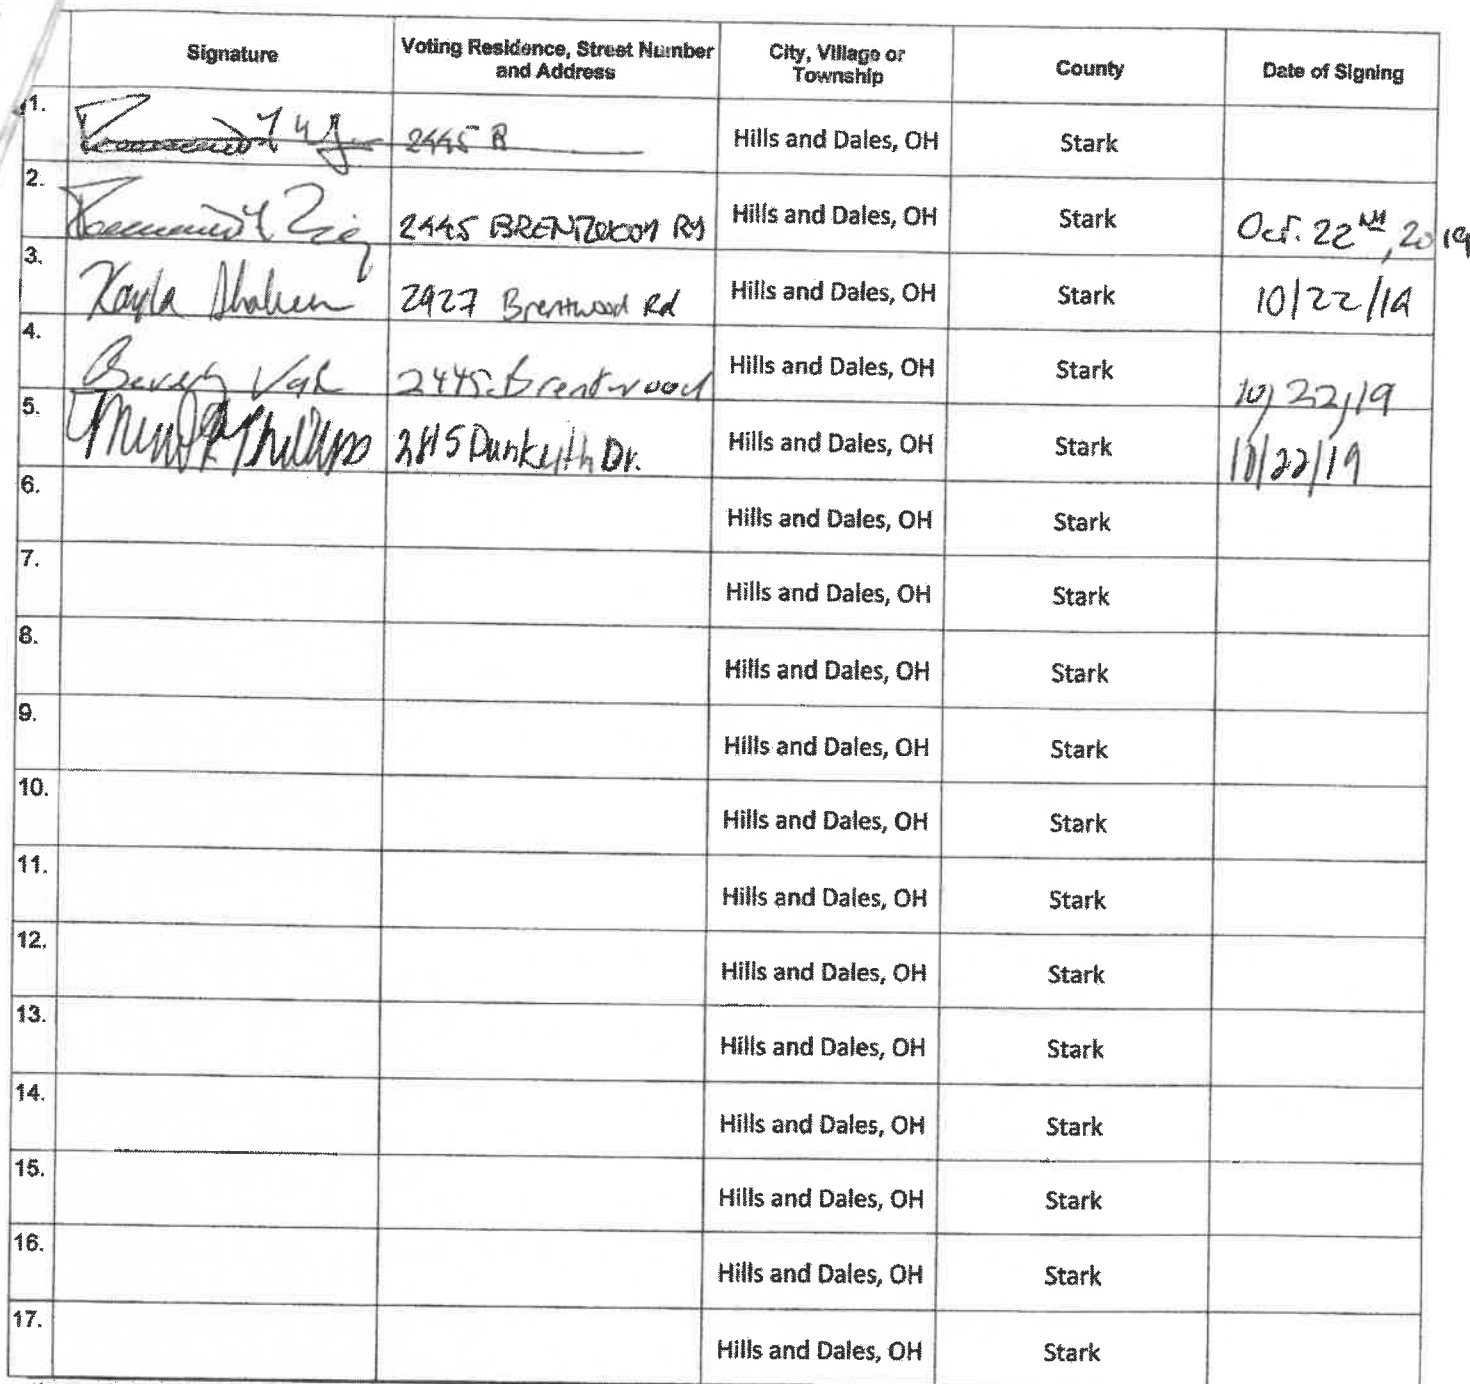 Signature Voting Residence, Street Number and Address City, Village or Township County Date of Signing
1. 2445 B Hills and Dales, OH Stark
2. 2445 BRENTWOOD RD Hills and Dales, OH Stark Oct. 22ND, 2019
3. Kayla 2927 Brentwood Rd Hills and Dales, OH Stark 10/22/19
4. Beverly 2445 Brentwood Hills and Dales, OH Stark 10/22/19
5. Phillips Dunkeith Dr. Hills and Dales, OH Stark 10/22/19
6. Hills and Dales, OH Stark
7. Hills and Dales, OH Stark
8. Hills and Dales, OH Stark
9. Hills and Dales, OH Stark
10. Hills and Dales, OH Stark
11. Hills and Dales, OH Stark
12. Hills and Dales, OH Stark
13. Hills and Dales, OH Stark
14. Hills and Dales, OH Stark
15. Hills and Dales, OH Stark
16. Hills and Dales, OH Stark
17. Hills and Dales, OH Stark